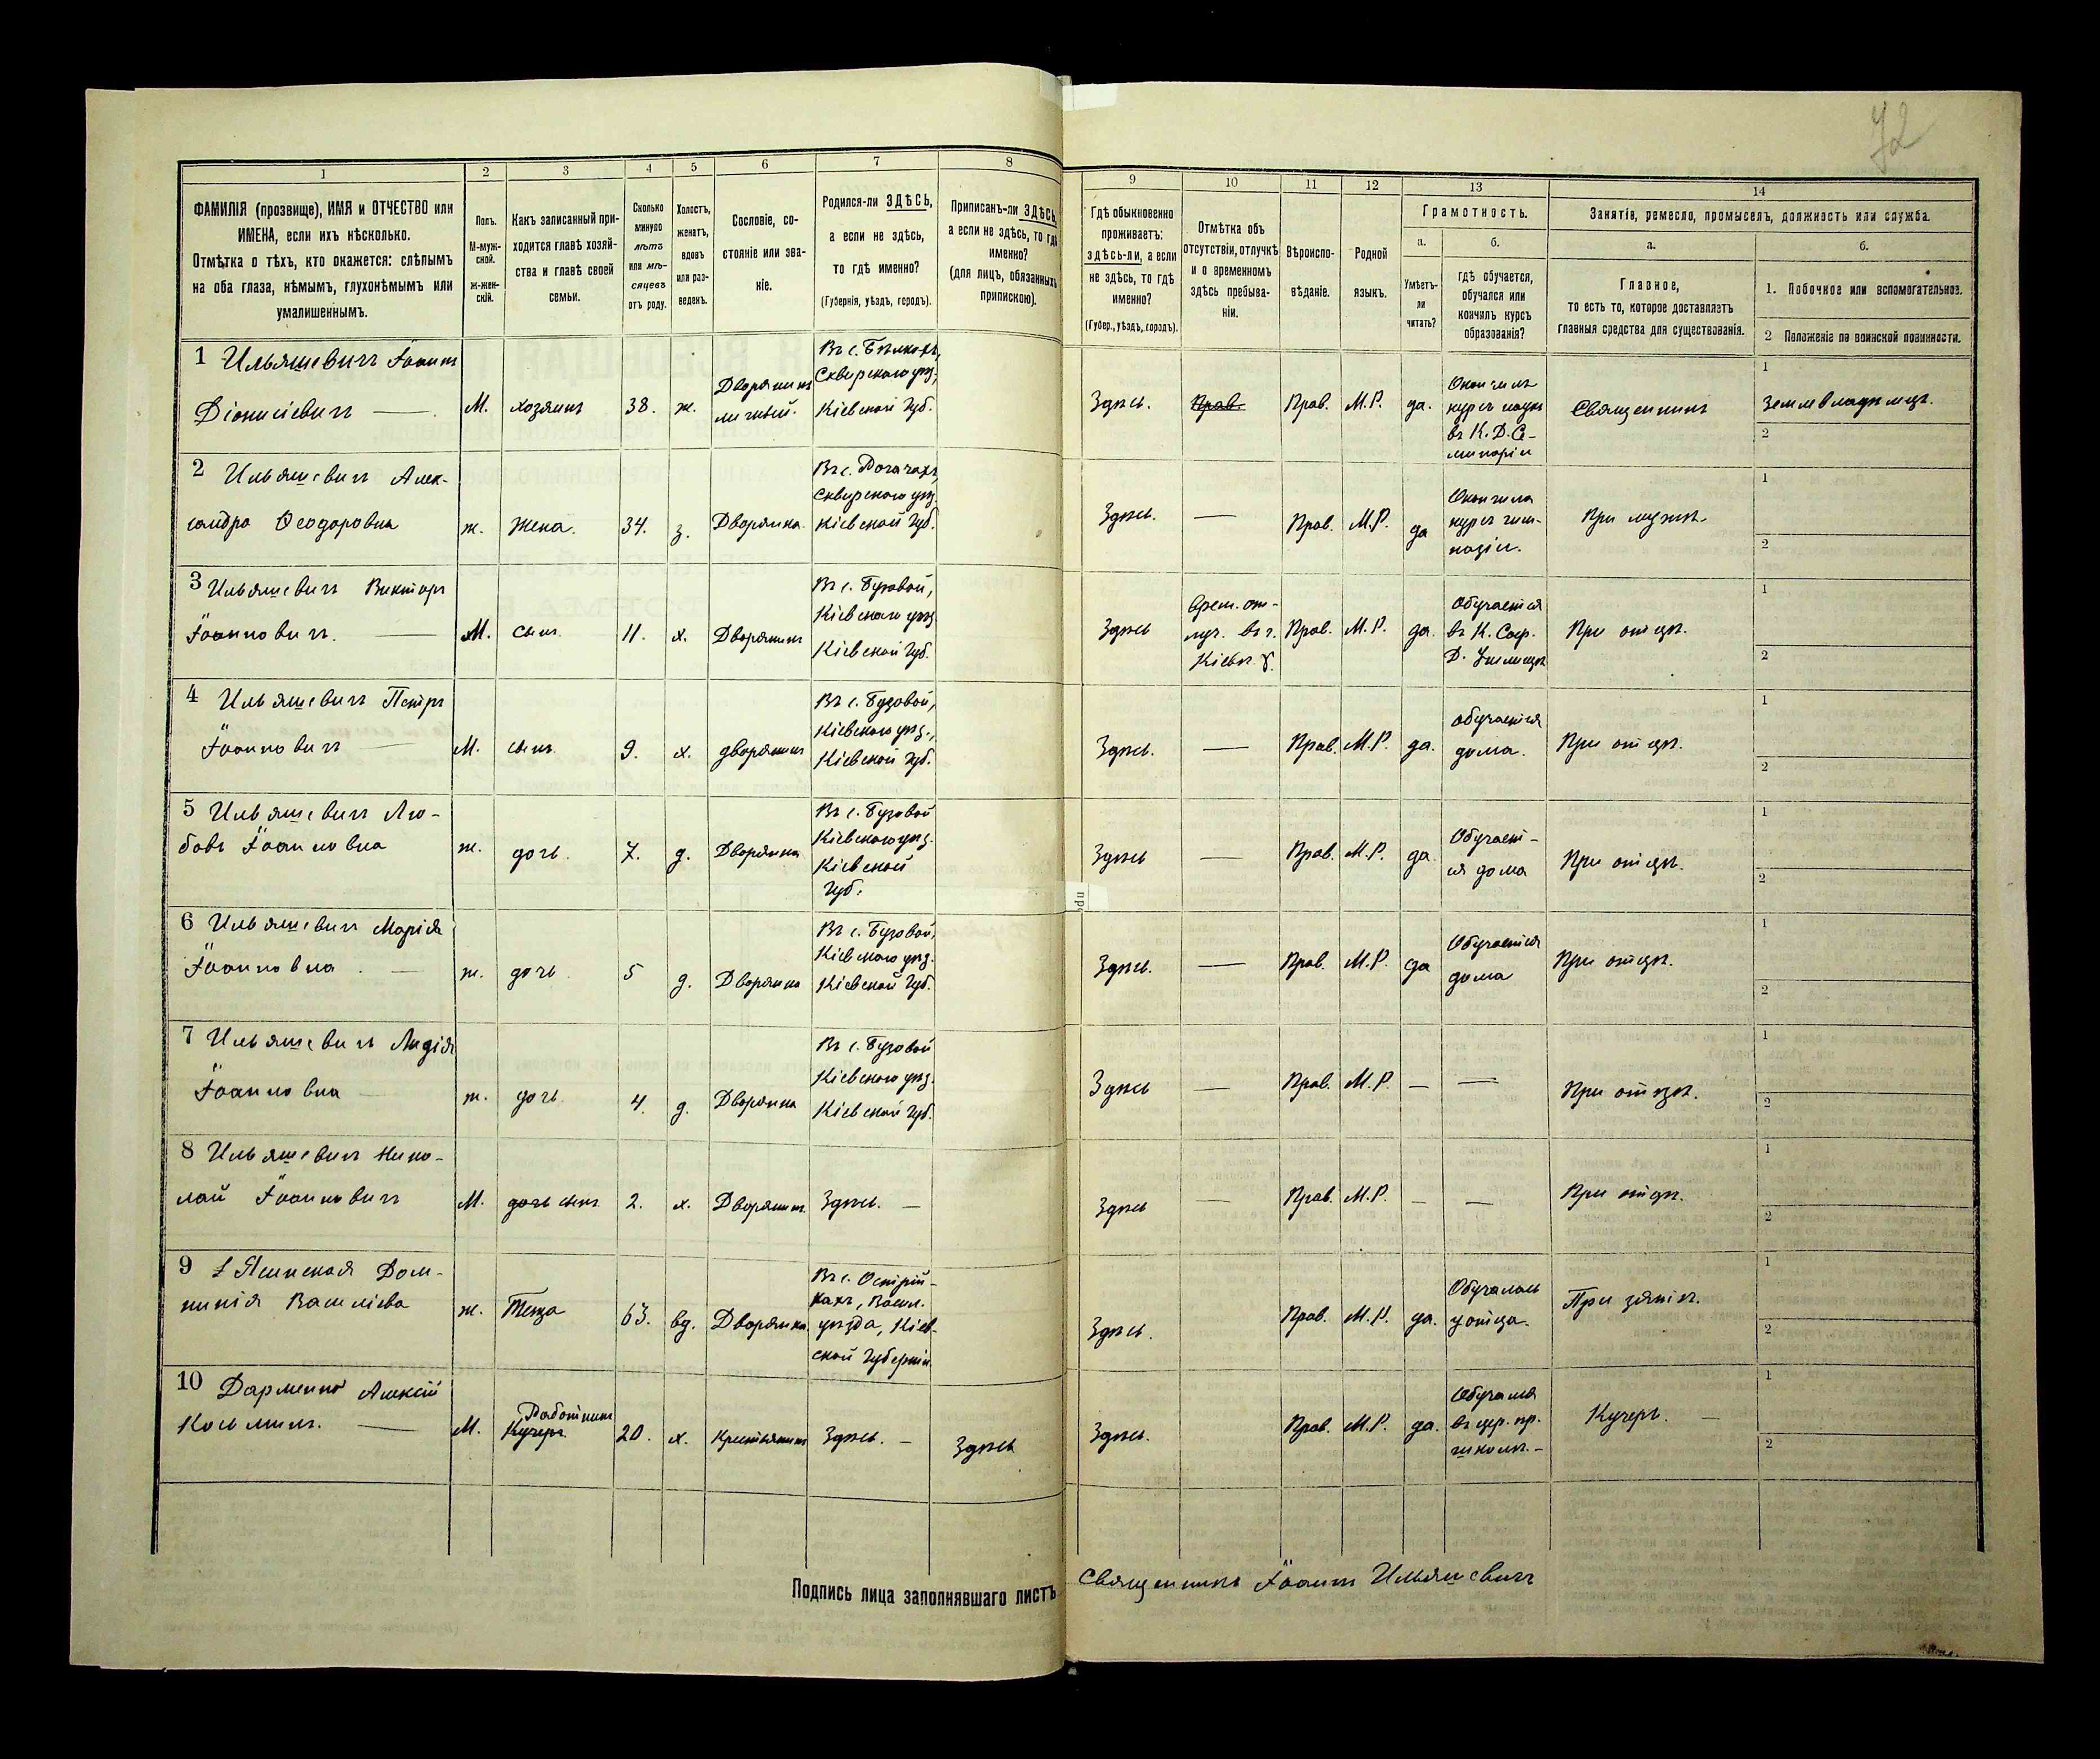 72
1
2
3
4
5
6
7
8
ФАМИЛІЯ (прозвище), ИМЯ и ОТЧЕСТВО или
ИМЕНА, если ихъ нѣсколько.
Отмѣтка о тѣхъ, кто окажется: слѣпымъ
на оба глаза, нѣмымъ, глухонѣмымъ или
умалишеннымъ.
Полъ.
М-муж-
ской.
ж-жен-
скій.
Какъ записанный при-
ходится главѣ хозяй-
ства и главѣ своей
семьи.
Сколько
минуло
лѣтъ
или мѣ-
сяцевъ
отъ роду.
Холостъ,
женатъ,
вдовъ
или раз-
веденъ.
Сословіе, со-
стояніе или зва-
ніе.
Родился-ли ЗДѢСЬ,
а если не здѣсь,
то гдѣ именно?
(Губернія, уѣздъ, городъ).
Приписанъ-ли ЗДѢСЬ,
а если не здѣсь, то гдѣ
именно?
(для лицъ, обязанныхъ
припискою).
9
10
11
12
13
14
Гдѣ обыкновенно
проживаетъ:
здѣсь-ли, а если
не здѣсь, то гдѣ
именно?
(Губер., уѣздъ, городъ).
Отмѣтка объ
отсутствіи, отлучкѣ
и о временномъ
здѣсь пребыва-
ніи.
Вѣроиспо-
вѣданіе.
Родной
языкъ.
Грамотность.
а.
Умѣетъ-
ли
читать?
б.
гдѣ обучается,
обучался или
кончилъ курсъ
образованія?
Занятіе, ремесло, промыселъ, должность или служба.
а.
Главное,
то есть то, которое доставляетъ
главныя средства для существованія.
б.
1. Побочное или вспомогательное.
2 Положеніе по воинской повинности.
1 Ильяшевичъ Іоаннъ
Діонисіевичъ —
М.
хозяинъ
38.
ж.
Дворянинъ
личный.
Въ с.
Сквирскаго уѣз.,
Кіевской Губ.
Здѣсь.
Прав.
Прав.
М.Р.
да.
Окончилъ
курсъ наукъ
въ К. Д. Се-
минаріи
Священникъ
1
Землевладѣлецъ.
2
2 Ильяшевичъ Алек-
сандра Ѳеодоровна
ж.
Жена.
34.
з.
Дворянка.
Въ с. Рогачахъ,
Сквирскаго уѣз.
Кіевской Губ.
Здѣсь.
—
Прав.
М.Р.
да
Окончила
курсъ гим-
назіи.
При мужѣ.
1
2
3 Ильяшевичъ Викторъ
Іоанновичъ. —
М.
сынъ.
11.
х.
Дворянинъ
Въ с. Бузовой,
Кіевскаго уѣз.
Кіевской Губ.
Здѣсь
Врем. от-
луч. въ г.
Кіевъ
Прав.
М.Р.
да.
Обучается
въ К. Соф.
Д. Училищѣ
При отцѣ.
1
2
4 Ильяшевичъ Петръ
Іоанновичъ —
М.
сынъ.
9.
х.
дворянинъ
Въ с. Бузовой,
Кіевскаго уѣз.,
Кіевской Губ.
Здѣсь.
—
Прав.
М.Р.
да.
Обучается
дома.
При отцѣ.
1
2
5 Ильяшевичъ Лю-
бовь Іоанновна
ж.
дочь.
7.
д.
Дворянка
Въ с. Бузовой
Кіевскаго уѣз.
Кіевской
Губ.
Здѣсь
—
Прав.
М.Р.
да
Обучает-
ся дома
При отцѣ.
1
2
6 Ильяшевичъ Марія
Іоанновна —
ж.
дочь
5
д.
Дворянка
Въ с. Бузовой,
Кіевскаго уѣз.
Кіевской Губ.
Здѣсь.
—
Прав.
М.Р.
да
Обучается
дома
При отцѣ.
1
2
7 Ильяшевичъ Лидія
Іоанновна
ж.
дочь.
4.
д.
Дворянка
Въ с. Бузовой
Кіевскаго уѣз.
Кіевской Губ.
Здѣсь
—
Прав.
М.Р.
—
—
При отцѣ.
1
2
8 Ильяшевичъ Нико-
лай Іоанновичъ
М.
дочь сынъ
2.
х.
Дворянинъ
Здѣсь. —
Здѣсь
—
Прав.
М.Р.
—
—
При отцѣ.
1
2
9 Ясинская Дом-
никія Василіева
ж.
Теща
63.
вд.
Дворянка.
Въ с. Острій-
кахъ, Васил.
уѣзда, Кіев-
ской Губерніи.
Здѣсь.
Прав.
М.Р.
да.
Обучалась
у отца.
При зятѣ.
1
2
10 Дарменко Алексій
Косминъ. —
М.
Работникъ
Кучеръ.
20.
х.
Крестьянинъ
Здѣсь. —
Здѣсь
Здѣсь.
Прав.
М.Р.
да.
Обучался
въ цер. пр.
школѣ. —
Кучеръ. —
1
2
Подпись лица заполнявшаго листъ
Священникъ Іоаннъ Ильяшевичъ